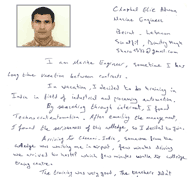 Chaptal Elie Adnane
Marine Engineer
Beirut - Lebanon
I am Marine Engineer, sometimes I has
long time vacation between contracts.
In vacation, I decided to be training in
India in field of industrial and processing automation.
By searching through internet, I found
Technocrat automation. After emailing the management,
I found the seriousness of the college, so I decided to join.
Arriving to Chennai, India, someone from the
college was waiting me in airport, few minutes driving
we arrived to hostel which few minutes walk to college
The training was very good, the teachers didn't